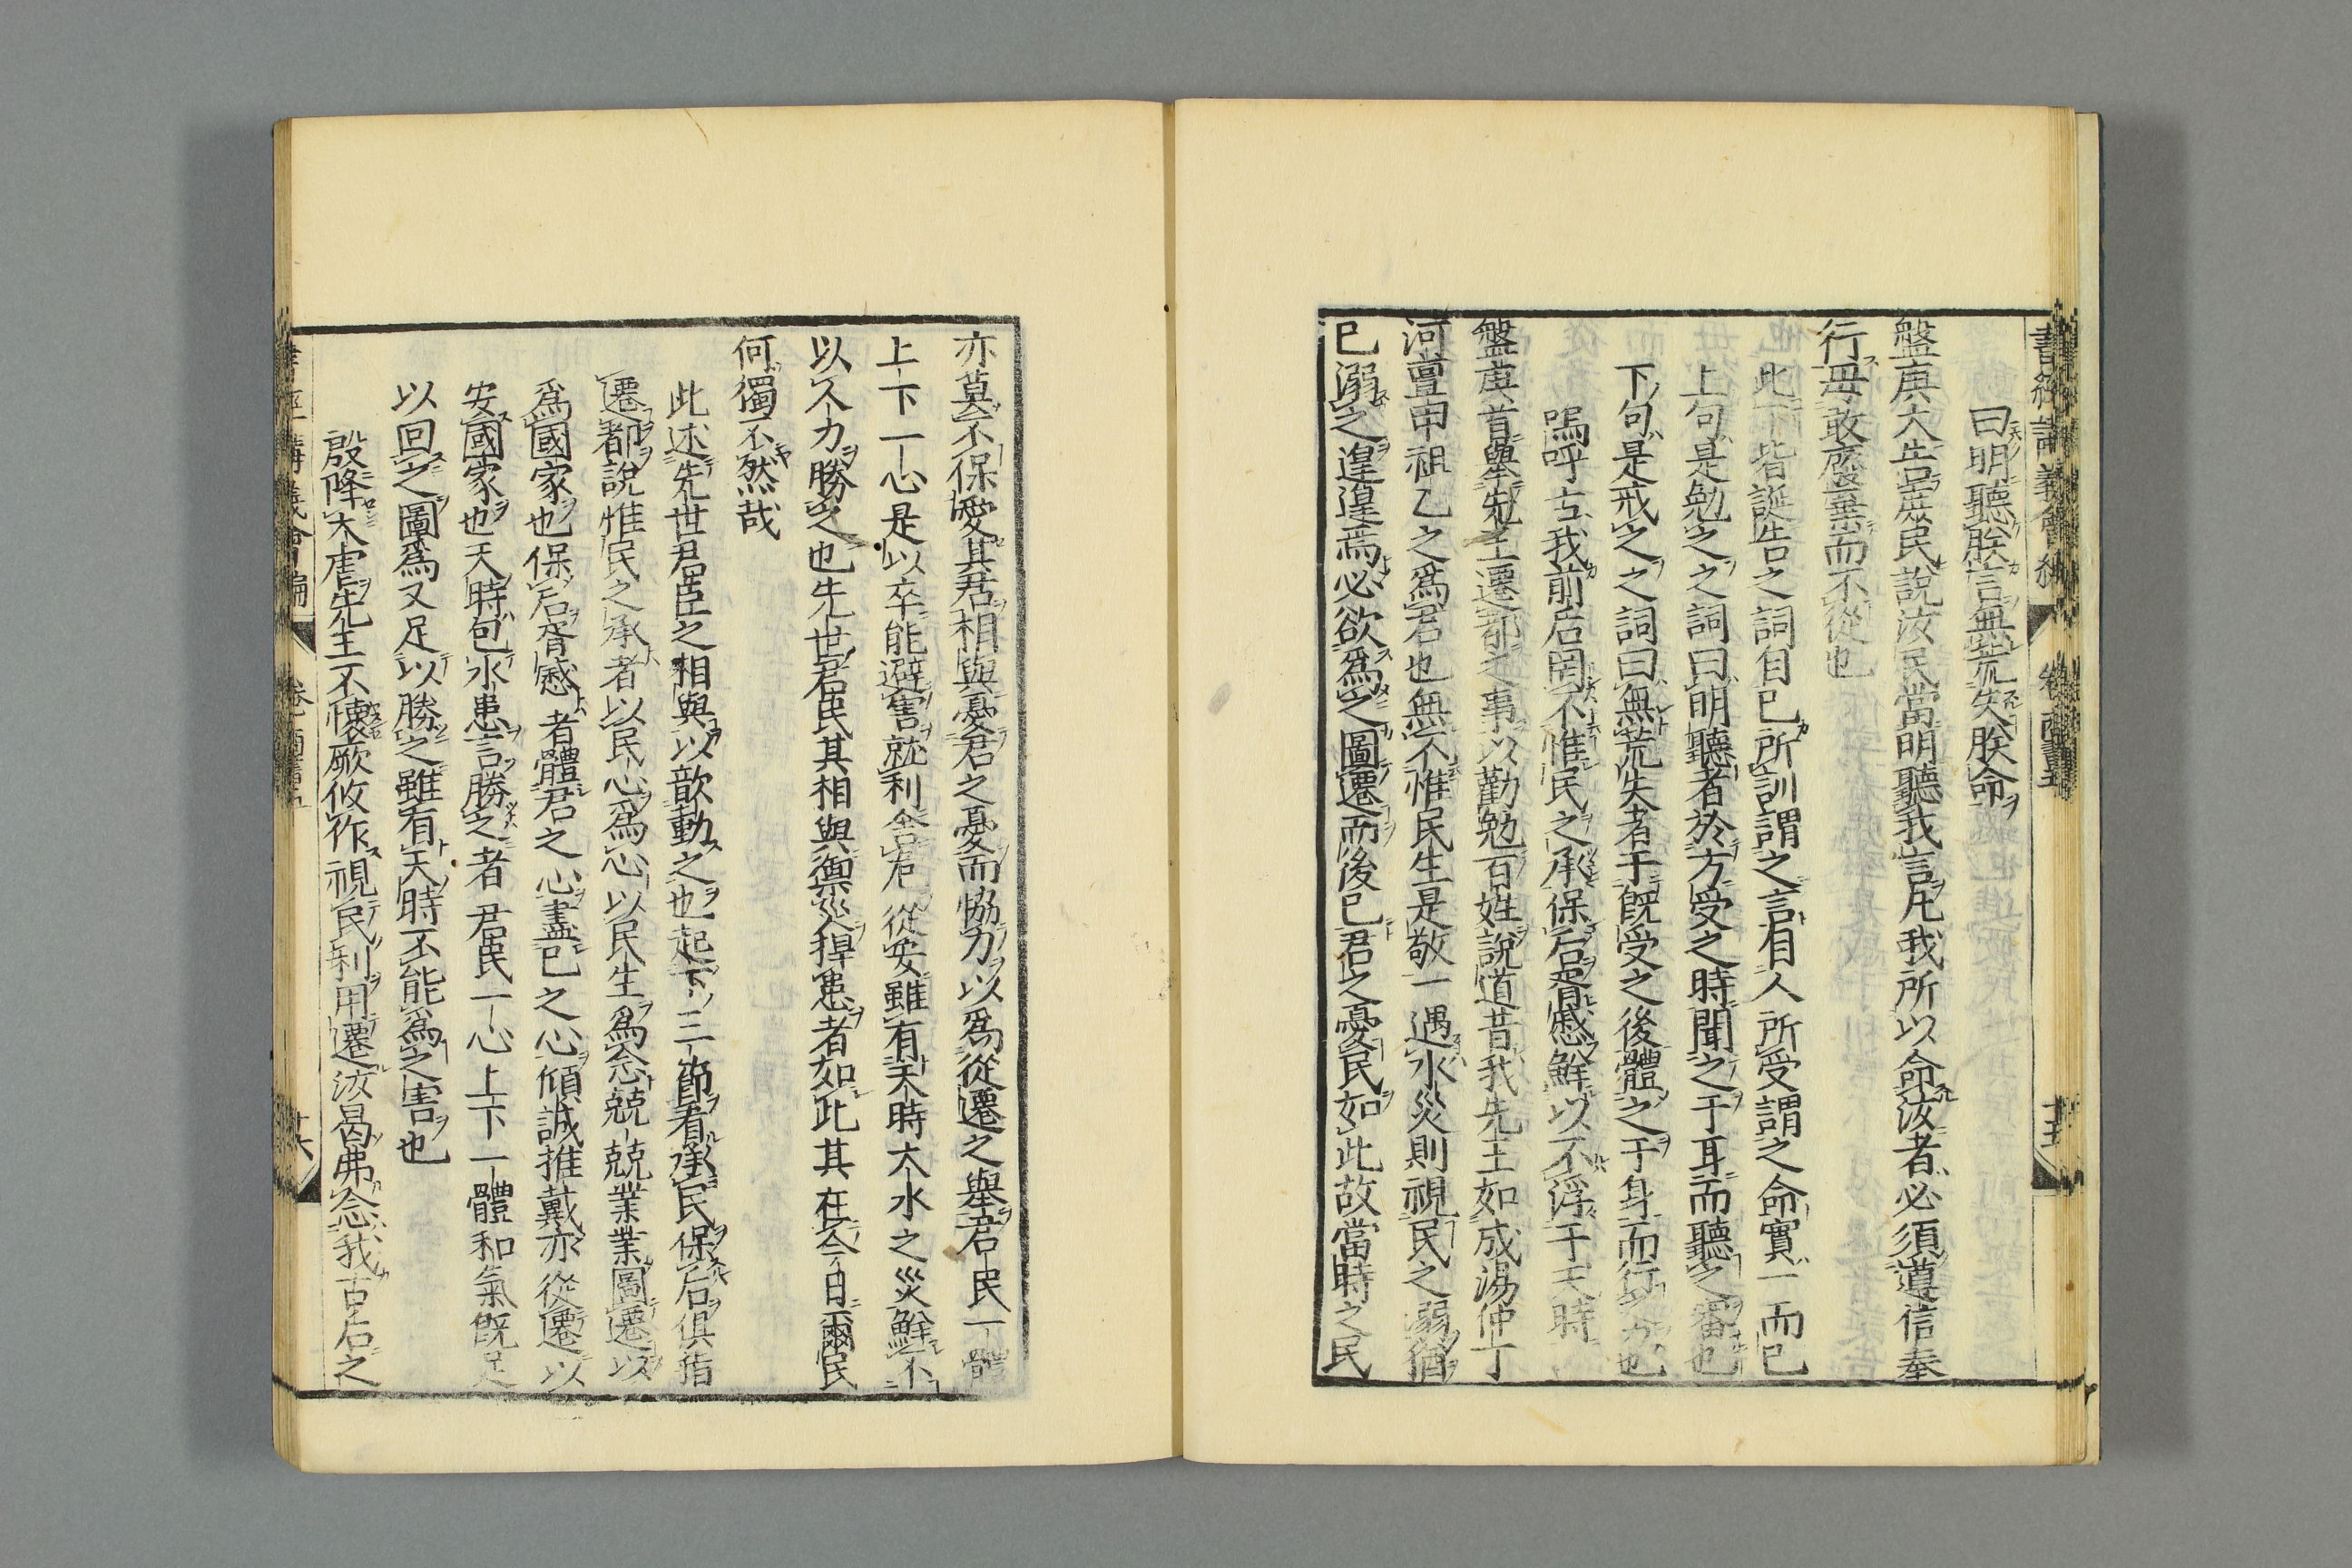 曰明聽朕言無荒失朕命
盤庚大告庶民說汝民當明聽我言凡我所以命汝者必須遵信奉
行毋敢廢棄而不從也
此下皆誕告之詞自已所訓謂之言自人所受謂之命實一而已
上句是勉之之詞曰明聽者於方受之時聞之于耳而聽之審也
下句是戒之之詞曰無荒失者于旣受之後體之于身而行之力也
嗚呼古我前后罔不惟民之承保后胥慼鮮以不浮于天時
盤庚首舉先王遷都之事以勸勉百姓說道昔我先王如成湯仲丁
河亶甲祖乙之爲君也無不惟民生是敬一遇水災則視民之溺猶
已溺之遑遑焉必欲爲之圖遷而後已君之憂民如此故當時之民
亦莫不保愛其君相與憂君之憂而協力以爲從遷之舉君民一體
上下一心是以卒能避害就利舍危從安雖有天時大水之災鮮不
以人力勝之也先世君民其相與禦災捍患者如此其在今日爾民
何獨不然哉
此述先世君臣之相與以歆動之也起下三節看承民保后俱指
遷都說惟民之承者以民心爲心以民生爲念兢兢業業圖遷以
爲國家也保后胥慼者體君之心盡已之心傾誠推戴亦從遷以
安國家也天時包水患言勝之者君民一心上下一體和氣旣足
以回之圖爲又足以勝之雖有天時不能爲之害也
殷降大虐先王不懷厥攸作視民利用遷汝曷弗念我古后之